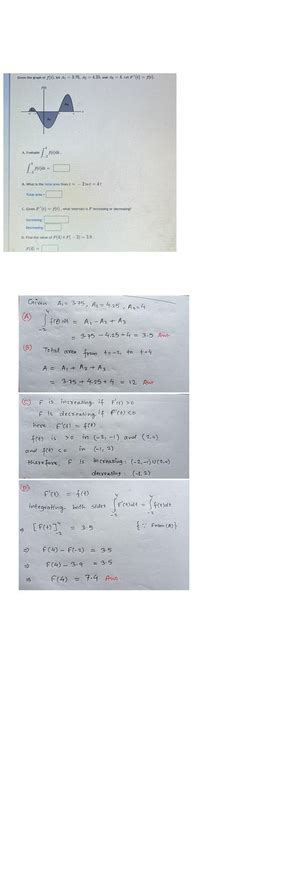 Given the graph of f(t), let A₁ = 3.75, A₂ = 4.25, and A₃ = 4. Let F'(t) = f(t).
f(t)
A₂
A. Evaluate ∫₋₂⁴ f(t)dt.
∫₋₂⁴ f(t)dt =
B. What is the total area from t = −2 to t = 4?
Total area =
C. Given F'(t) = f(t), what intervals is F increasing or decreasing?
Increasing:
Decreasing:
D. Find the value of F(4) if F(−2) = 3.9.
F(4) =
Given A₁= 3.75, A₂= 4.25, A₃=4
(A) ∫₋₂⁴ f(t)dt = A₁ − A₂ + A₃
= 3.75 − 4.25 + 4 = 3.5 Ans
(B) Total area from t=-2 to t=4
A = A₁ + A₂ + A₃
= 3.75 + 4.25 + 4 = 12 Ans
(C) F is increasing if F'(t) >0
F is decreasing if F'(t) <0
here F'(t) = f(t)
f(t) is >0 in (-2,-1) and (2,4)
and f(t) <0 in (-1,2)
therefore F is increasing: (-2,-1)∪(2,4)
decreasing: (-1,2)
(D)
F'(t) = f(t)
integrating both sides ∫₋₂⁴ F'(t)dt = ∫₋₂⁴ f(t)dt
⇒ [F(t)]₋₂⁴ = 3.5 {∵ From (A)}
⇒ F(4) − F(-2) = 3.5
⇒ F(4) − 3.9 = 3.5
⇒ F(4) = 7.4 Ans